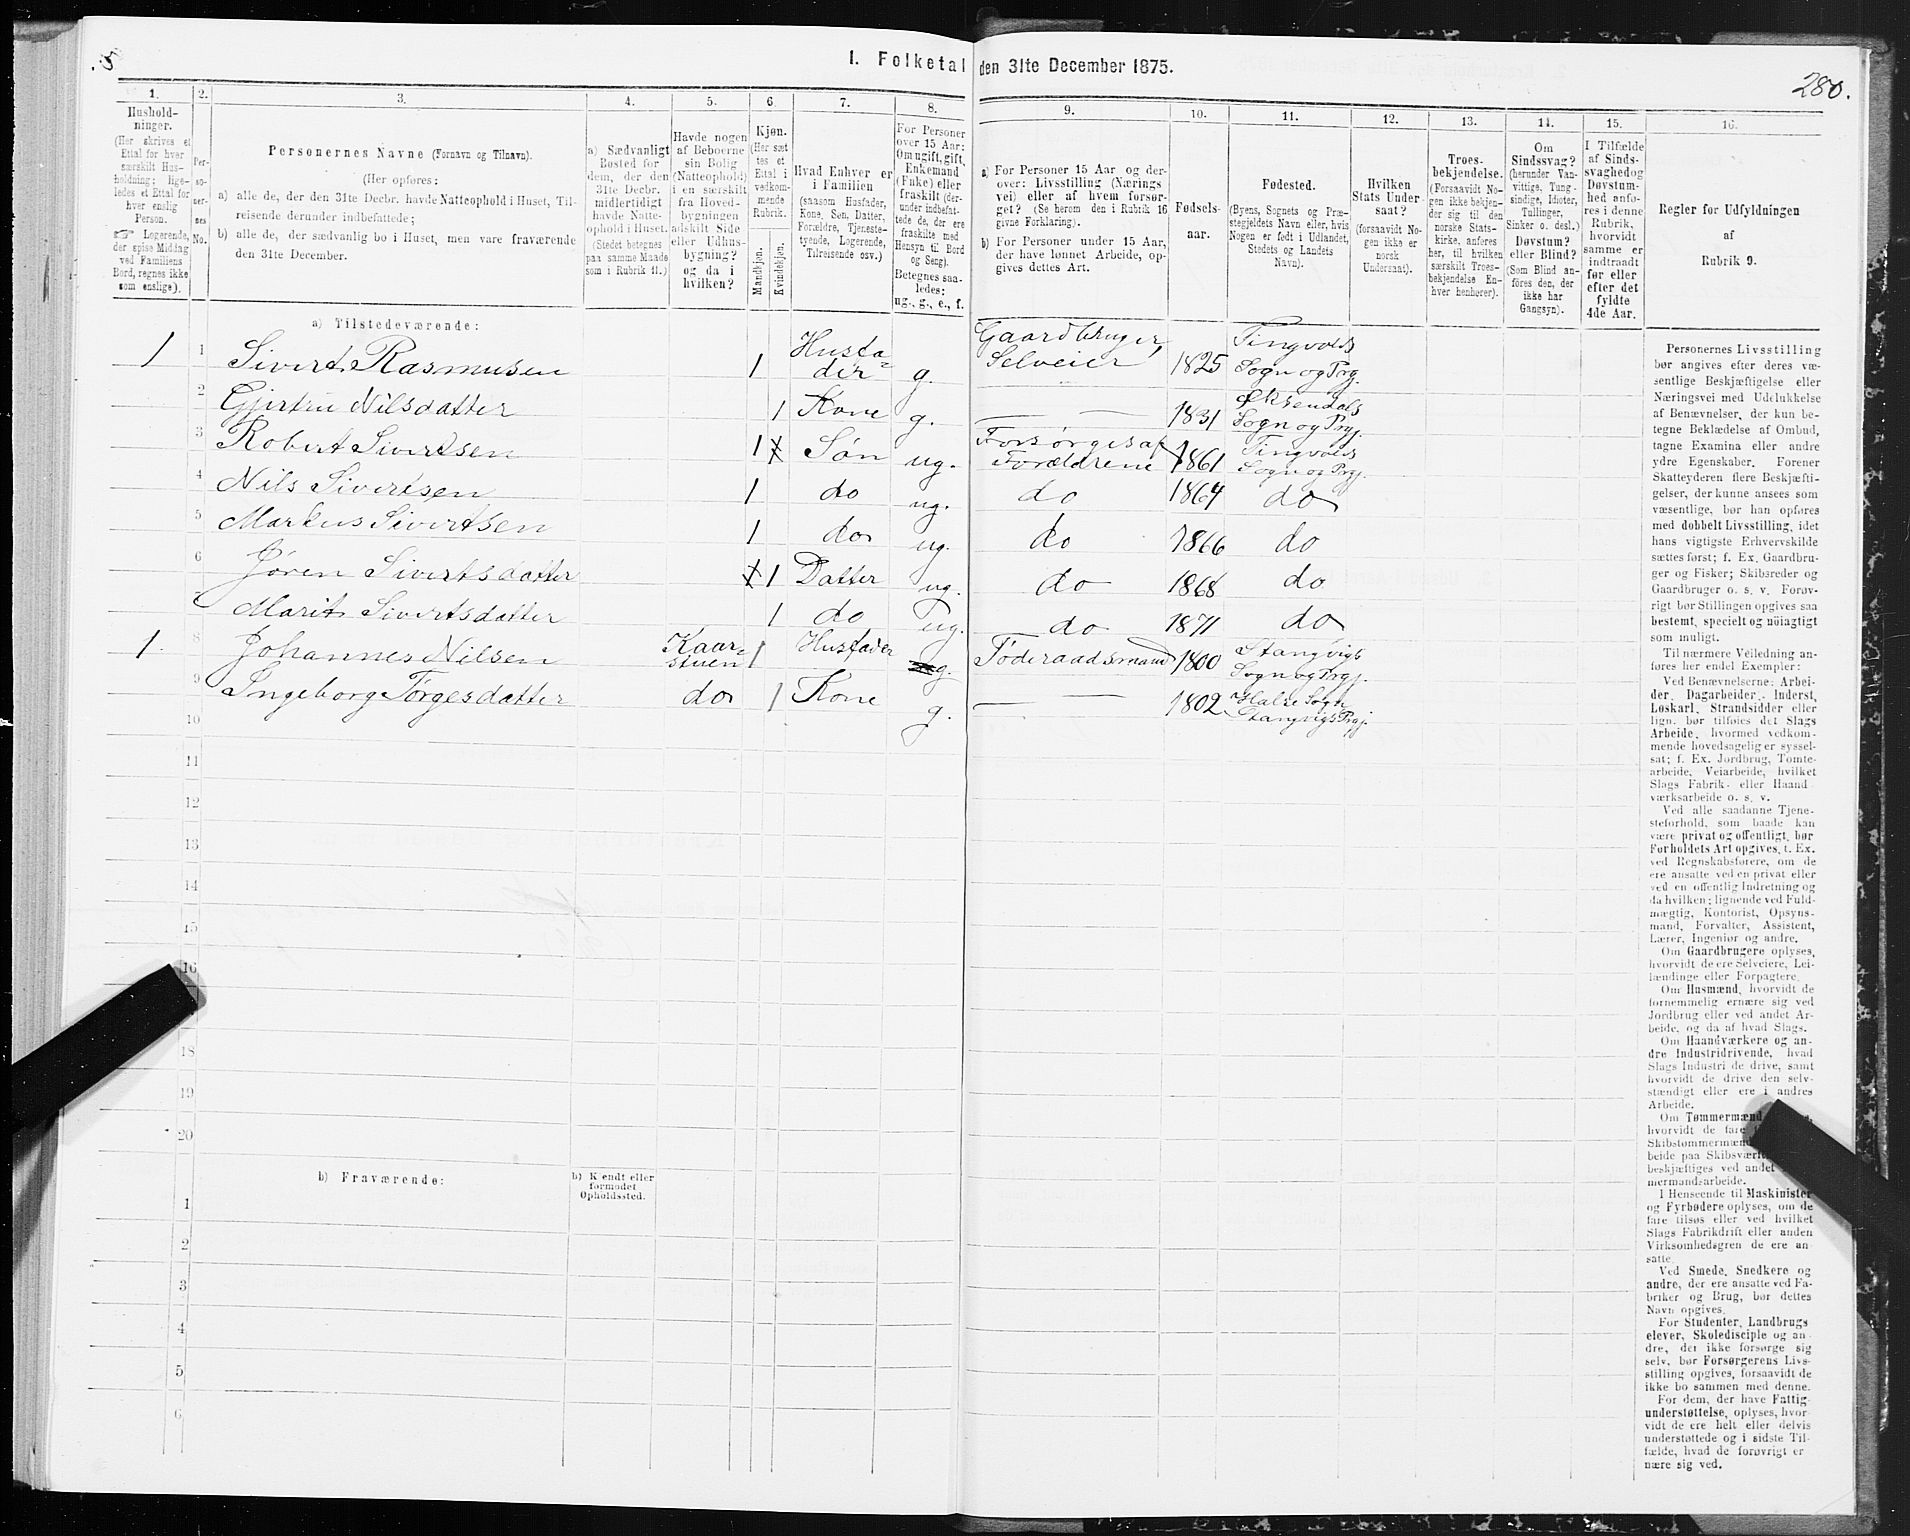 5
I. Folketal den 31te December 1875.
280.
1.
Husholdninger.
(Her skrives et
Ettal for hver
særskilt Husholdning; ligeledes et Ettal for
hver enslig
Person.
☞ Logerende,
der spise Middag
ved Familiens
Bord, regnes ikke
som enslige).
2.
Personernes
No.
3.
Personernes Navne (Fornavn og Tilnavn).
(Her opføres:
a) alle de, der den 31te Decbr. havde Natteophold i Huset, Tilreisende derunder indbefattede;
b) alle de, der sædvanlig bo i Huset, men vare fraværende
den 31te December.
4.
a) Sædvanligt
Bosted for
dem, der den
31te Decbr.
midlertidigt
havde Natteophold i Huset.
(Stedet betegnes
paa samme Maade
som i Rubrik 11.)
5.
Havde nogen
af Beboerne
sin Bolig
(Natteophold)
i en særskilt
fra Hovedbygningen
adskilt Side
eller Udhusbygning?
og da i
hvilken?
6.
Kjøn.
(Her sættes et
Ettal i
vedkommende
Rubrik.
Mandkjøn.
Kvindekjøn.
7.
Hvad Enhver er
i Familien
(saasom Husfader,
Kone, Søn, Datter,
Forældre, Tjenestetyende, Logerende,
Tilreisende osv.)
8.
For Personer
over 15 Aar:
Om ugift, gift,
Enkemand
(Enke) eller
fraskilt (derunder indbefattede de, der ere
fraskilte med
Hensyn til Bord
og Seng).
Betegnes saaledes:
ug., g., e., f.
9.
a) For Personer 15 Aar og derover: Livsstilling (Næringsvei) eller af hvem forsørget? (Se herom den i Rubrik 16
givne Forklaring).
b) For Personer under 15 Aar,
der have lønnet Arbeide, opgives dettes Art.
10.
Fødselsaar.
11.
Fødested.
(Byens, Sognets og Præstegjeldets Navn eller, hvis
Nogen er født i Udlandet,
Stedets og Landets
Navn).
12.
Hvilken
Stats Undersaat?
(forsaavidt Nogen ikke er
norsk
Undersaat).
13.
Troesbekjendelse.
(Forsaavidt Nogen ikke bekjender sig til den
norske Statskirke, anføres
her, til hvilken
særskilt Troesbekjendelse Enhver henhører).
14.
Om
Sindssvag?
(herunder Vanvittige, Tungsindige, Idioter,
Tullinger,
Sinker o. desl.)
Døvstum?
eller Blind?
(Som Blind anføres den, der
ikke har
Gangsyn).
15.
I Tilfælde
af Sindssvaghed og
Døvstumhed anføres i denne
Rubrik,
hvorvidt
samme er
indtraadt
før eller
efter det
fyldte
4de Aar.
16.
Regler for Udfyldningen
af
Rubrik 9.
a) Tilstedeværende:
1 1 Sivert Rasmusen 1 Husfader g. Gaardbruger, Selveier 1825 Tingvolds Sogn og Prgj.
2 Gjertru Nilsdatter 1 Kone g. — — 1831 Øksendals Sogn og Prgj.
3 Robert Sivertsen 1 Søn ug. Forsørges af Forældrene 1861 Tingvolds Sogn og Prgj.
4 Nils Sivertsen 1 do ug. do 1864 do
5 Markus Sivertsen 1 do ug. do 1866 do
6 Jøren Sivertsdatter 1 Datter ug. do 1868 do
7 Marit Sivertsdatter 1 do ug. do 1871 do
1. 8 Johannes Nilsen Kaarstuen 1 Husfader g. Føderaadsmand 1800 Stangvigs Sogn og Prgj.
9 Ingeborg Torgesdatter do 1 Kone g. — — 1802 Halse Sogn Stangvigs Prgj.
10
11
12
13
14
15
16
18
19
20
b) Fraværende:
b) Kendt eller
formodet
Opholdssted.
1
2
3
4
5
6
Personernes Livsstilling
bør angives efter deres væsentlige Beskjæftigelse eller
Næringsvei med Udelukkelse
af Benævnelser, der kun betegne Beklædelse af Ombud,
tagne Examina eller andre
ydre Egenskaber. Forener
Skatteyderen flere Beskjæftigelser, der kunne ansees som
væsentlige, bør han opføres
med dobbelt Livsstilling, idet
hans vigtigste Erhvervskilde
sættes først; f. Ex. Gaardbruger og Fisker; Skibsreder og
Gaardbruger o. s. v. Forøvrigt bør Stillingen opgives saa
bestemt, specielt og nøiagtigt
som muligt.
Til nærmere Veiledning anføres her endel Exempler:
Ved Benævnelserne: Arbeider, Dagarbeider, Inderst,
Løskarl, Strandsidder eller
lign. bør tilføies det Slags
Arbeide, hvormed vedkommende hovedsagelig er sysselsat; f. Ex. Jordbrug, Tomtearbeide, Veiarbeide, hvilket
Slags Fabrik- eller Haandværksarbeide o. s. v.
Ved alle saadanne Tjenesteforhold, som baade kan
være privat og offentligt, bør
Forholdets Art opgives, f. Ex.
ved Regnskabsførere, om de
ere ansatte ved en privat eller
ved en offentlig Indretning og
da hvilken; lignende ved Fuldmægtig, Kontorist, Opsynsmand, Forvalter, Assistent,
Lærer, Ingeniør og andre.
Om Gaardbrugere oplyses,
hvorvidt de ere Selveiere, Leilændinge eller Forpagtere.
Om Husmænd, hvorvidt de
fornemmelig ernære sig ved
Jordbrug eller ved andet Arbeide, og da af hvad Slags.
Om Haandværkere og andre Industridrivende, hvad
Slags Industri de drive, samt
hvorvidt de drive den selvstændigt eller ere i andres
Arbeide.
Om Tømmermænd
hvorvidt de fare
Skibstømmermænd
beide paa Skibsværft
beskjæftiges ved andet
mermandsarbeide.
I Henseende til Maskinister
og Fyrbødere oplyses, om de
fare tilsøs eller ved hvilket
Slags Fabrikdrift eller anden
Virksomhedsgren de ere ansatte.
Ved Smede, Snedkere og
andre, der ere ansatte ved Fabriker og Brug, bør dettes
Navn opgives.
For Studenter, Landbrugselever, Skoledisciple og andre, der ikke forsørge sig
selv, bør Forsørgerens Livsstilling opgives, forsaavidt de
ikke bo sammen med denne.
For dem, der have Fattigunderstøttelse, oplyses, hvorvidt de ere helt eller delvis
understøttede og i sidste Tilfælde, hvad de forøvrigt ernære sig ved.